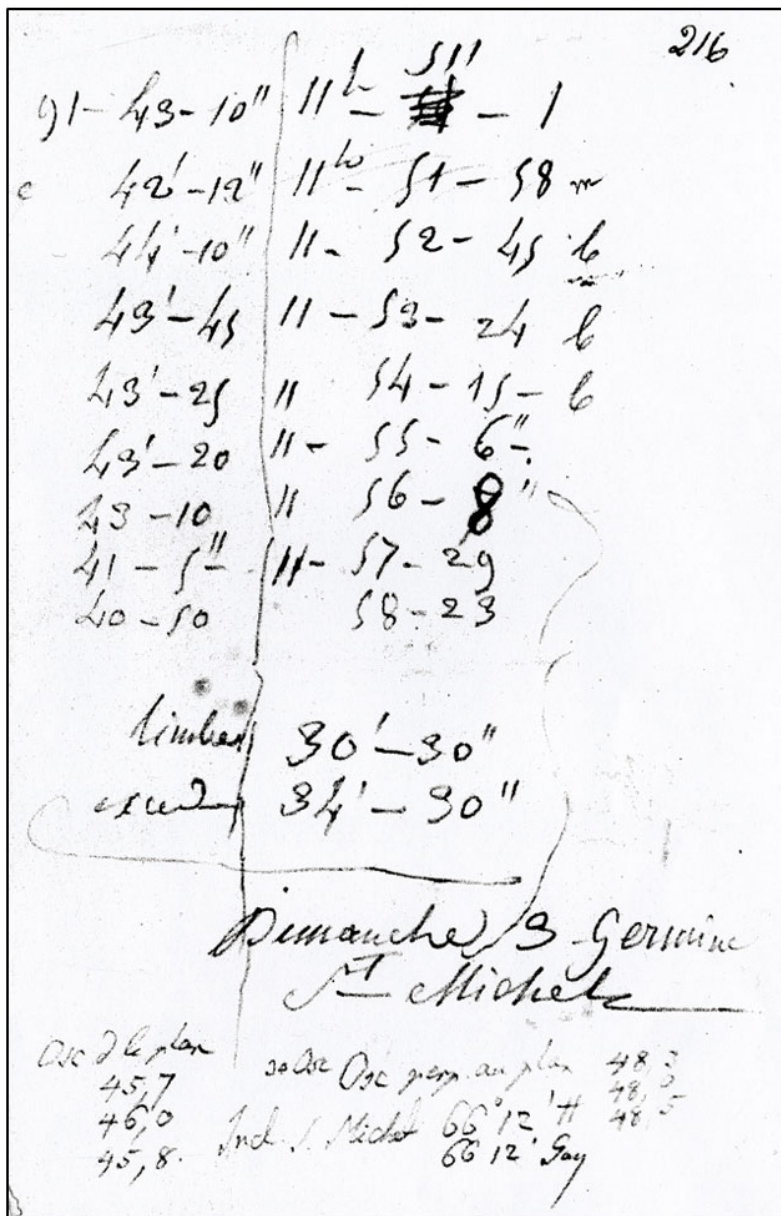 216
91-43-10" 11h - 51' - 1
c 42'-12" 11h - 51 - 58 m
44'-10" 11 - 52 - 45 b
43'-45 11 - 53 - 24 b
43'-25 11 54 - 15 - b
43'-20 11 - 55 - 6" -
43-10 11 56 - 8"
41-5" - 11 - 57 - 29
40-50 58-23
limbes 30'-30"
34'-30"
Dimanche 3 Germinal
St Michel
Osc d le plan
45,7
46,0
45,8.
Osc perp. au plan 48,3
48,
48,5
Incl. S. Michel 66° 12' H
66 12' Gay